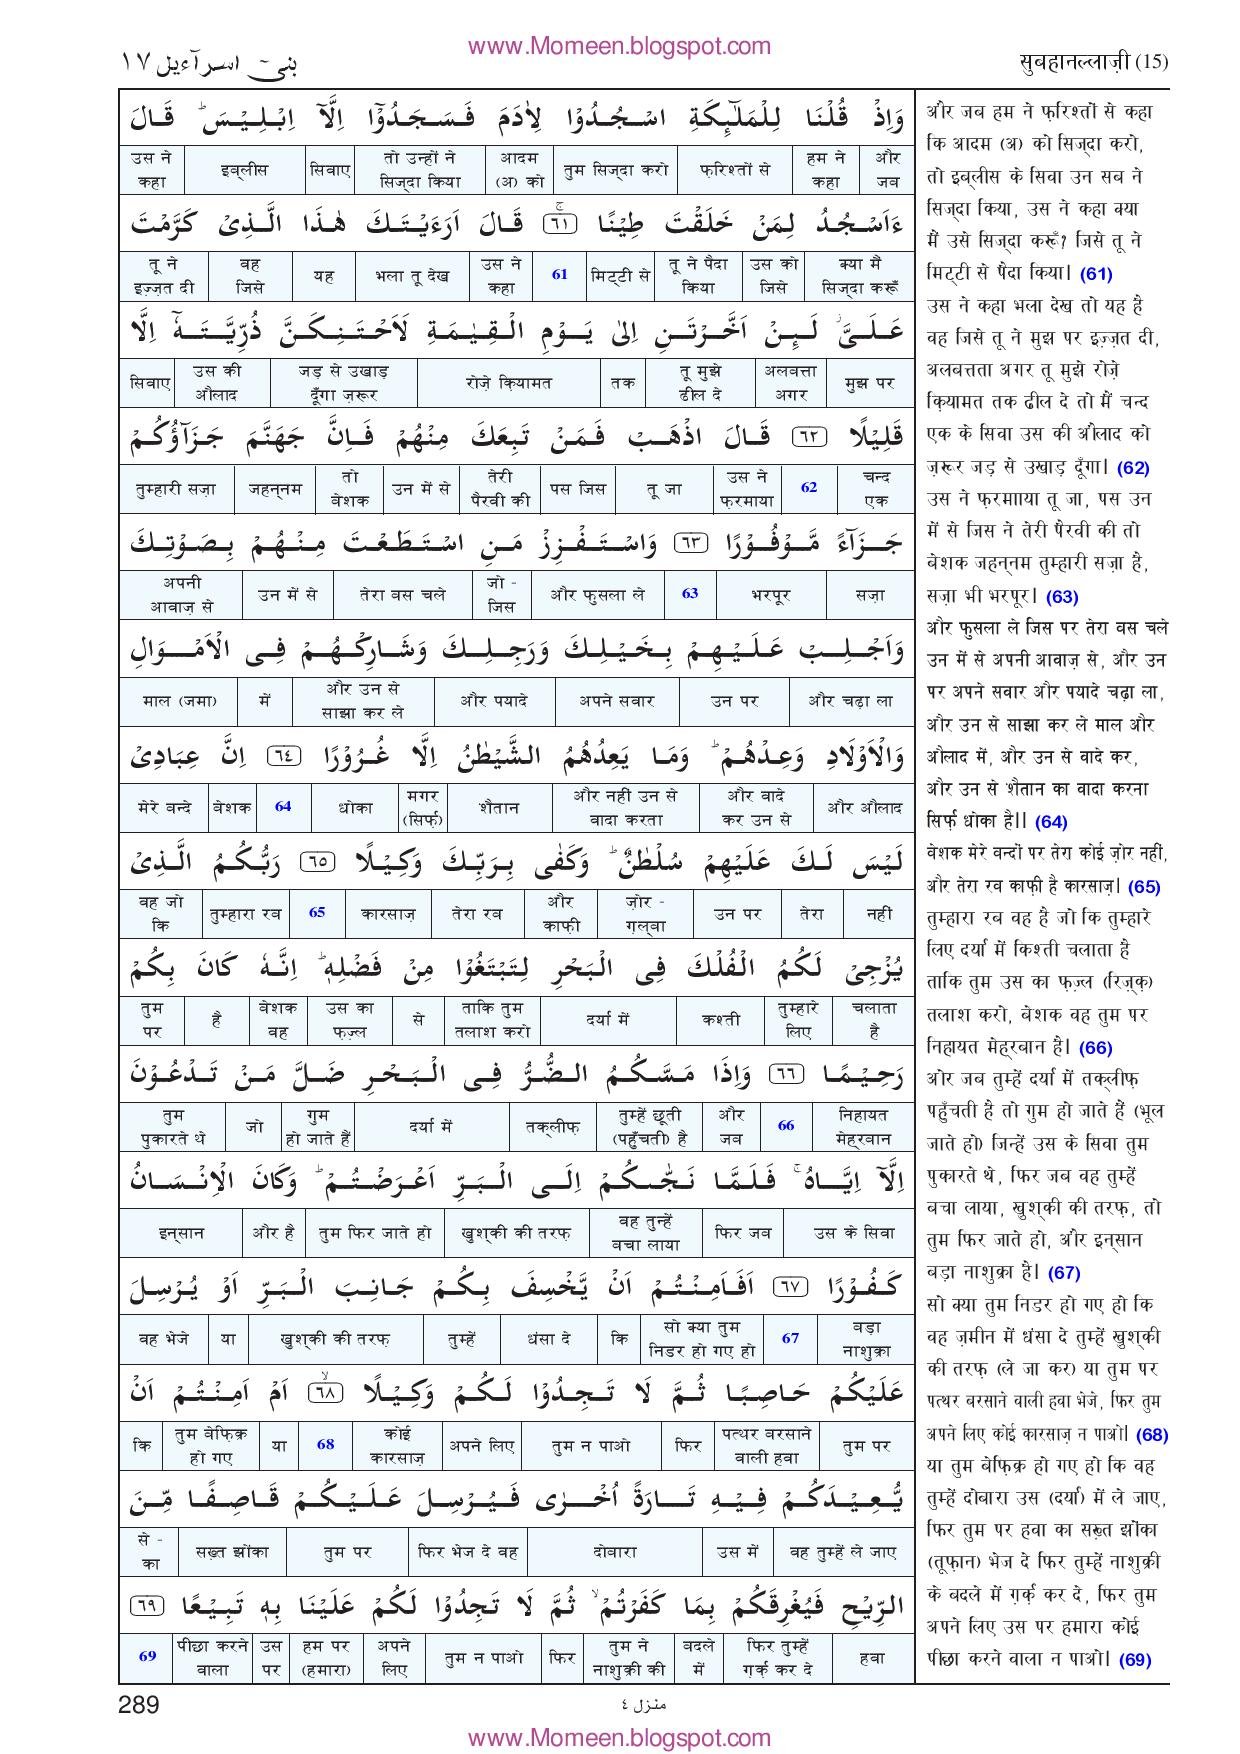 www.Momeen.blogspot.com
بنی اسرآءیل ١٧
सुबहानल्लाज़ी (15)
وَاِذْ قُلْنَا لِلْمَلٰٓئِكَةِ اسْجُدُوْا لِاٰدَمَ فَسَجَدُوْٓا اِلَّآ اِبْلِيْسَ ۭ قَالَ
और जब हम ने कहा फ़रिश्तों से तुम सिज्दा करो आदम (अ) को तो उन्हों ने सिज्दा किया सिवाए इब्लीस उस ने कहा
ءَاَسْجُدُ لِمَنْ خَلَقْتَ طِيْنًا ۟ۚ ٦١ قَالَ اَرَءَيْتَكَ هٰذَا الَّذِيْ كَرَّمْتَ
क्या मैं सिज्दा करूँ उस को जिसे तू ने पैदा किया मिट्टी से 61 उस ने कहा भला तू देख यह वह जिसे तू ने इज़्ज़त दी
عَلَيَّ ۡ لَىِٕنْ اَخَّرْتَنِ اِلٰى يَوْمِ الْقِيٰمَةِ لَاَحْتَنِكَنَّ ذُرِّيَّتَهٗٓ اِلَّا
मुझ पर अलबत्ता अगर तू मुझे ढील दे तक रोज़े क़ियामत जड़ से उखाड़ दूँगा ज़रूर उस की औलाद सिवाए
قَلِيْلًا ٦٢ قَالَ اذْهَبْ فَمَنْ تَبِعَكَ مِنْهُمْ فَاِنَّ جَهَنَّمَ جَزَآؤُكُمْ
चन्द एक 62 उस ने फ़रमाया तू जा पस जिस तेरी पैरवी की उन में से तो बेशक जहन्नम तुम्हारी सज़ा
جَزَآءً مَّوْفُوْرًا ٦٣ وَاسْتَفْزِزْ مَنِ اسْتَطَعْتَ مِنْهُمْ بِصَوْتِكَ
सज़ा भरपूर 63 और फुसला ले जो - जिस तेरा बस चले उन में से अपनी आवाज़ से
وَاَجْلِبْ عَلَيْهِمْ بِخَيْلِكَ وَرَجِلِكَ وَشَارِكْهُمْ فِي الْاَمْوَالِ
और चढ़ा ला उन पर अपने सवार और पयादे और उन से साझा कर ले में माल (जमा)
وَالْاَوْلَادِ وَعِدْهُمْ ۭ وَمَا يَعِدُهُمُ الشَّيْطٰنُ اِلَّا غُرُوْرًا ٦٤ اِنَّ عِبَادِيْ
और औलाद और वादे कर उन से और नहीं उन से वादा करता शैतान मगर (सिर्फ़) धोका 64 बेशक मेरे बन्दे
لَيْسَ لَكَ عَلَيْهِمْ سُلْطٰنٌ ۭ وَكَفٰى بِرَبِّكَ وَكِيْلًا ٦٥ رَبُّكُمُ الَّذِيْ
नहीं तेरा उन पर ज़ोर - ग़ल्बा और काफ़ी तेरा रब कारसाज़ 65 तुम्हारा रब वह जो कि
يُزْجِيْ لَكُمُ الْفُلْكَ فِي الْبَحْرِ لِتَبْتَغُوْا مِنْ فَضْلِهٖ ۭ اِنَّهٗ كَانَ بِكُمْ
चलाता है तुम्हारे लिए कश्ती दर्या में ताकि तुम तलाश करो से उस का फज़्ल बेशक वह है तुम पर
رَحِيْمًا ٦٦ وَاِذَا مَسَّكُمُ الضُّرُّ فِي الْبَحْرِ ضَلَّ مَنْ تَدْعُوْنَ
निहायत मेह्रबान 66 और जब तुम्हें छूती (पहुँचती) है तक्लीफ़ दर्या में गुम हो जाते हैं जो तुम पुकारते थे
اِلَّآ اِيَّاهُ ۚ فَلَمَّا نَجّٰىكُمْ اِلَى الْبَرِّ اَعْرَضْتُمْ ۭ وَكَانَ الْاِنْسَانُ
उस के सिवा फिर जब वह तुन्हें बचा लाया खुश्की की तरफ़ तुम फिर जाते हो और है इन्सान
كَفُوْرًا ٦٧ اَفَاَمِنْتُمْ اَنْ يَّخْسِفَ بِكُمْ جَانِبَ الْبَرِّ اَوْ يُرْسِلَ
बड़ा नाशुक्रा 67 सो क्या तुम निडर हो गए हो कि धंसा दे तुम्हें खुश्की की तरफ़ या वह भेजे
عَلَيْكُمْ حَاصِبًا ثُمَّ لَا تَجِدُوْا لَكُمْ وَكِيْلًا ۙ ٦٨ اَمْ اَمِنْتُمْ اَنْ
तुम पर पत्थर बरसाने वाली हवा फिर तुम न पाओ अपने लिए कोई कारसाज़ 68 या तुम बेफ़िक्र हो गए कि
يُّعِيْدَكُمْ فِيْهِ تَارَةً اُخْرٰى فَيُرْسِلَ عَلَيْكُمْ قَاصِفًا مِّنَ
वह तुम्हें ले जाए उस में दोबारा फिर भेज दे वह तुम पर सख़्त झोंका से - का
الرِّيْحِ فَيُغْرِقَكُمْ بِمَا كَفَرْتُمْ ۙ ثُمَّ لَا تَجِدُوْا لَكُمْ عَلَيْنَا بِهٖ تَبِيْعًا ٦٩
हवा फिर तुम्हें ग़र्क़ कर दे बदले में तुम ने नाशुक्री की फिर तुम न पाओ अपने लिए हम पर (हमारा) उस पर पीछा करने वाला 69
और जब हम ने फ़रिश्तों से कहा
कि आदम (अ) को सिज्दा करो,
तो इब्लीस के सिवा उन सब ने
सिज्दा किया, उस ने कहा क्या
मैं उसे सिज्दा करूँ? जिसे तू ने
मिट्टी से पैदा किया। (61)
उस ने कहा भला देख तो यह है
वह जिसे तू ने मुझ पर इज़्ज़त दी,
अलबत्तता अगर तू मुझे रोज़े
क़ियामत तक ढील दे तो मैं चन्द
एक के सिवा उस की औलाद को
ज़रूर जड़ से उखाड़ दूँगा। (62)
उस ने फ़रमााया तू जा, पस उन
में से जिस ने तेरी पैरवी की तो
बेशक जहन्नम तुम्हारी सज़ा है,
सज़ा भी भरपूर। (63)
और फुसला ले जिस पर तेरा बस चले
उन में से अपनी आवाज़ से, और उन
पर अपने सवार और पयादे चढ़ा ला,
और उन से साझा कर ले माल और
औलाद में, और उन से वादे कर,
और उन से शैतान का वादा करना
सिर्फ़ धोका है।। (64)
बेशक मेरे बन्दों पर तेरा कोई ज़ोर नहीं,
और तेरा रब काफ़ी है कारसाज़। (65)
तुम्हारा रब वह है जो कि तुम्हारे
लिए दर्या में किश्ती चलाता है
ताकि तुम उस का फज़्ल (रिज़्क़)
तलाश करो, बेशक वह तुम पर
निहायत मेह्रबान है। (66)
ओर जब तुम्हें दर्या में तक्लीफ़
पहुँचती है तो गुम हो जाते हैं (भूल
जाते हो) जिन्हें उस के सिवा तुम
पुकारते थे, फिर जब वह तुम्हें
बचा लाया, खुश्की की तरफ़, तो
तुम फिर जाते हो, और इन्सान
बड़ा नाशुक्रा है। (67)
सो क्या तुम निडर हो गए हो कि
वह ज़मीन में धंसा दे तुम्हें खुश्की
की तरफ़ (ले जा कर) या तुम पर
पत्थर बरसाने वाली हवा भेजे, फिर तुम
अपने लिए कोई कारसाज़ न पाओ। (68)
या तुम बेफ़िक्र हो गए हो कि वह
तुम्हें दोबारा उस (दर्या) में ले जाए,
फिर तुम पर हवा का सख़्त झोंका
(तूफ़ान) भेज दे फिर तुम्हें नाशुक्री
के बदले में ग़र्क़ कर दे, फिर तुम
अपने लिए उस पर हमारा कोई
पीछा करने वाला न पाओ। (69)
289
منزل ٤
www.Momeen.blogspot.com